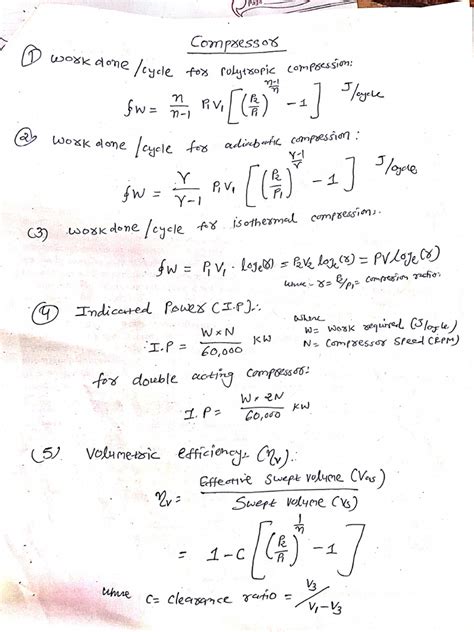 Compressor
(1) work done/cycle for polytropic compression:
∮W = n/n-1 P₁V₁ [(P₂/P₁)^(n-1/n) - 1] J/cycle
(2) work done/cycle for adiabatic compression:
∮W = γ/γ-1 P₁V₁ [(P₂/P₁)^(γ-1/γ) - 1] J/cycle
(3) work done/cycle for isothermal compression:
∮W = P₁V₁ . logₑ(r) = P₂V₂ logₑ(r) = PV logₑ(r)
where - r = P₂/P₁ = compression ratio.
(4) Indicated Power (I.P):
I.P = W×N/60,000 KW
where
W = work required (J/cycle)
N = compressor speed (RPM)
for double acting compressor:
I.P = W× 2N/60,000 KW
(5) Volumetric efficiency (ηv):
ηv = Effective swept volume (Vas)/Swept volume (Vs)
= 1-C [(P₂/P₁)^(1/n) - 1]
where C = clearance ratio = V₃/V₁-V₃